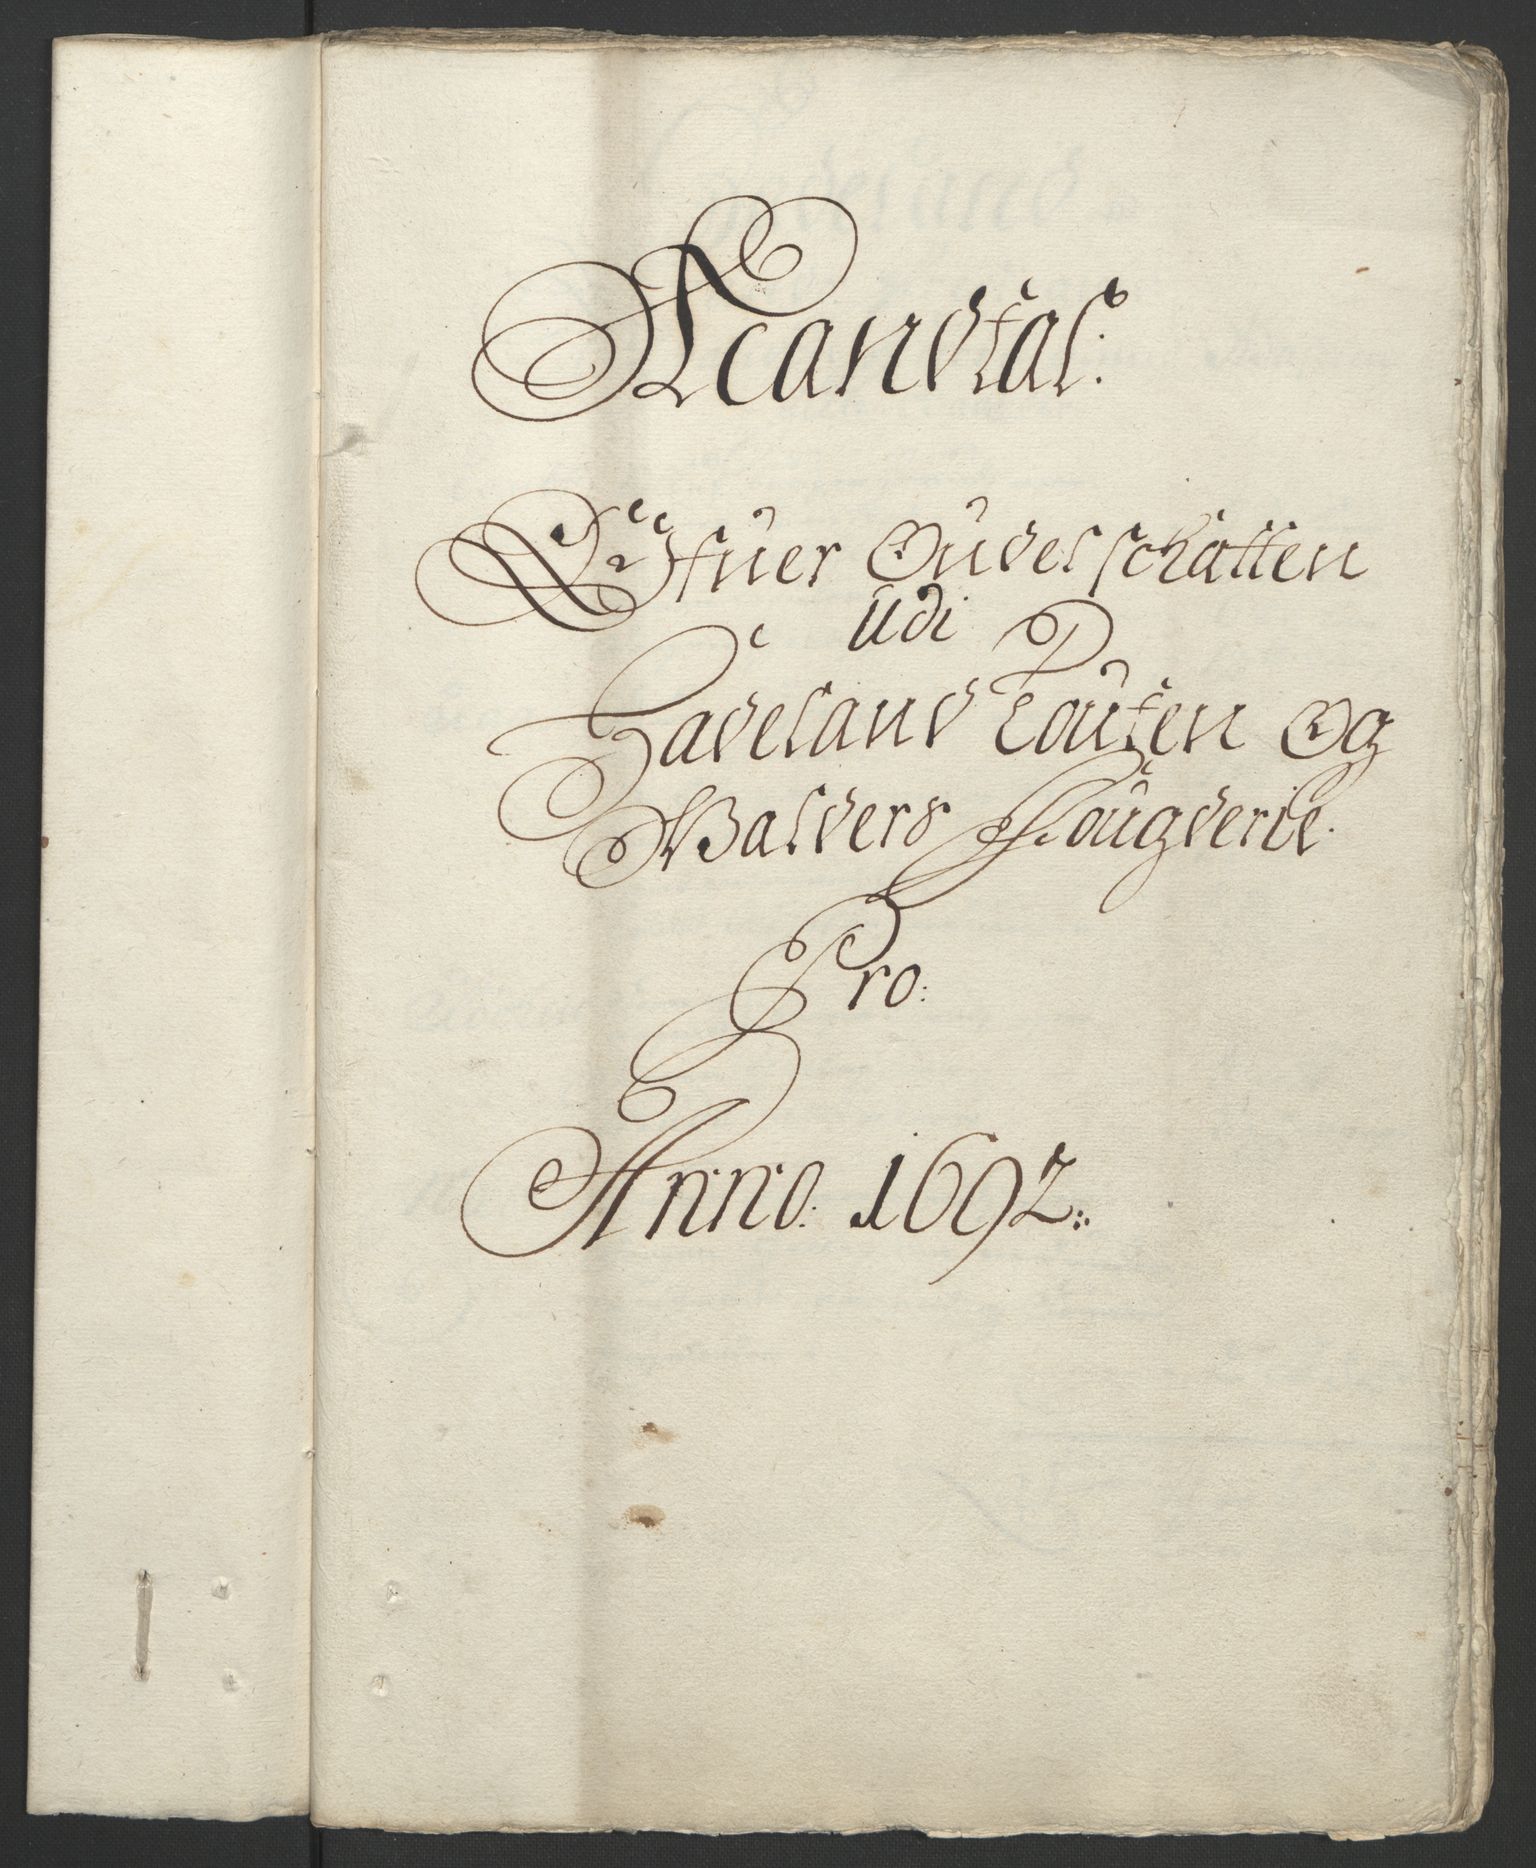 Mandtal.
Ofuer Qvuelschatten
Udi
Hadeland Touten Og
Walders Fougderie.
Pro:
Anno: 1692: